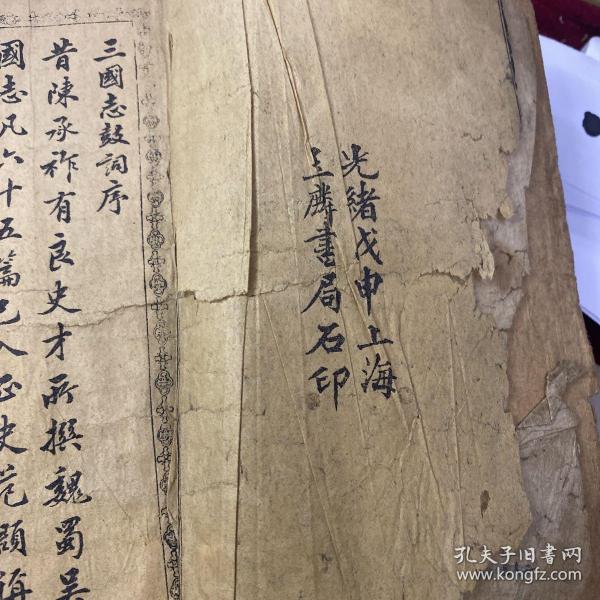 光緒戊申上海
書局石印
三國志鼓詞序
昔陳承祚有良史才所撰魏蜀吳
國志凡六十五篇已入正史范頵稱
孔夫子旧书网
www.kongfz.com